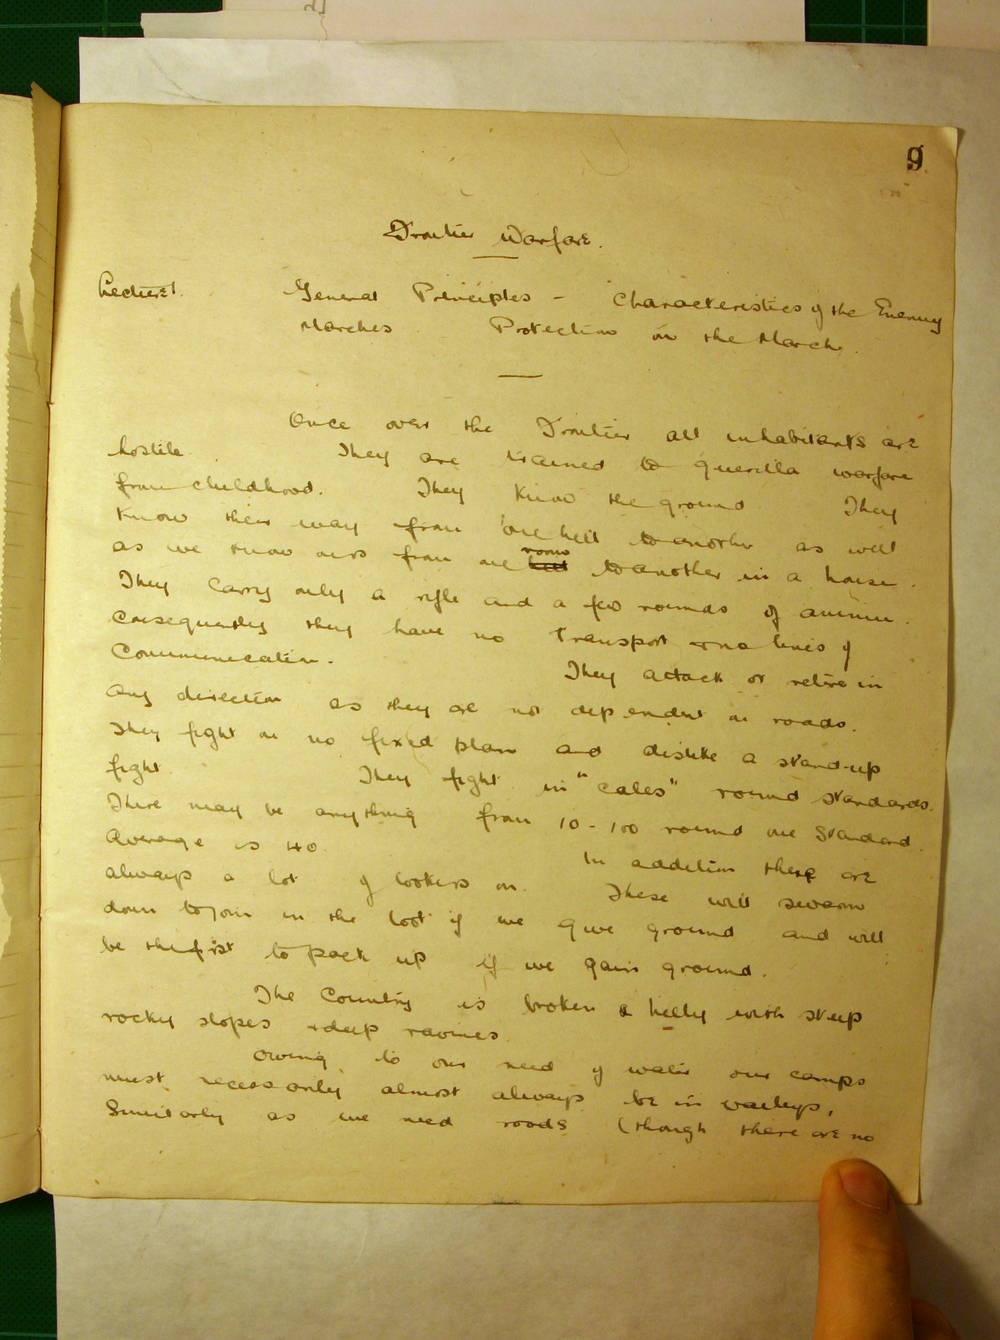 9
Frontier Warfare.
Lecture 1. General Principles - Characteristics of the Enemy
Marches. Protection on the March.
Once over the Frontier all inhabitants are
hostile. They are trained to guerilla warfare
from childhood. They know the ground. They
know their way from one hill to another as well
as we know ours from one hill rooms to another in a house.
They carry only a rifle and a few rounds of ammn.
Consequently they have no transport & no lines of
Communication. They attack or retire in
any direction as they are not dependent on roads.
They fight on no fixed plan and dislike a stand-up
fight. They fight in round standards.
There may be anything from 10-100 round one Standard.
Average is 40. In addition there are
always a lot of lookers on. These will swarm
down to join in the loot if we give ground and will
be the first to pack up if we gain ground.
The Country is broken & hilly with steep
rocky slopes & deep ravines.
Owing to our need of water our camps
must necessarily almost always be in valleys,
Similarly as we need roads (though there are no